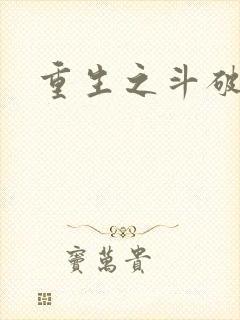 重生之斗破
窦萬貴